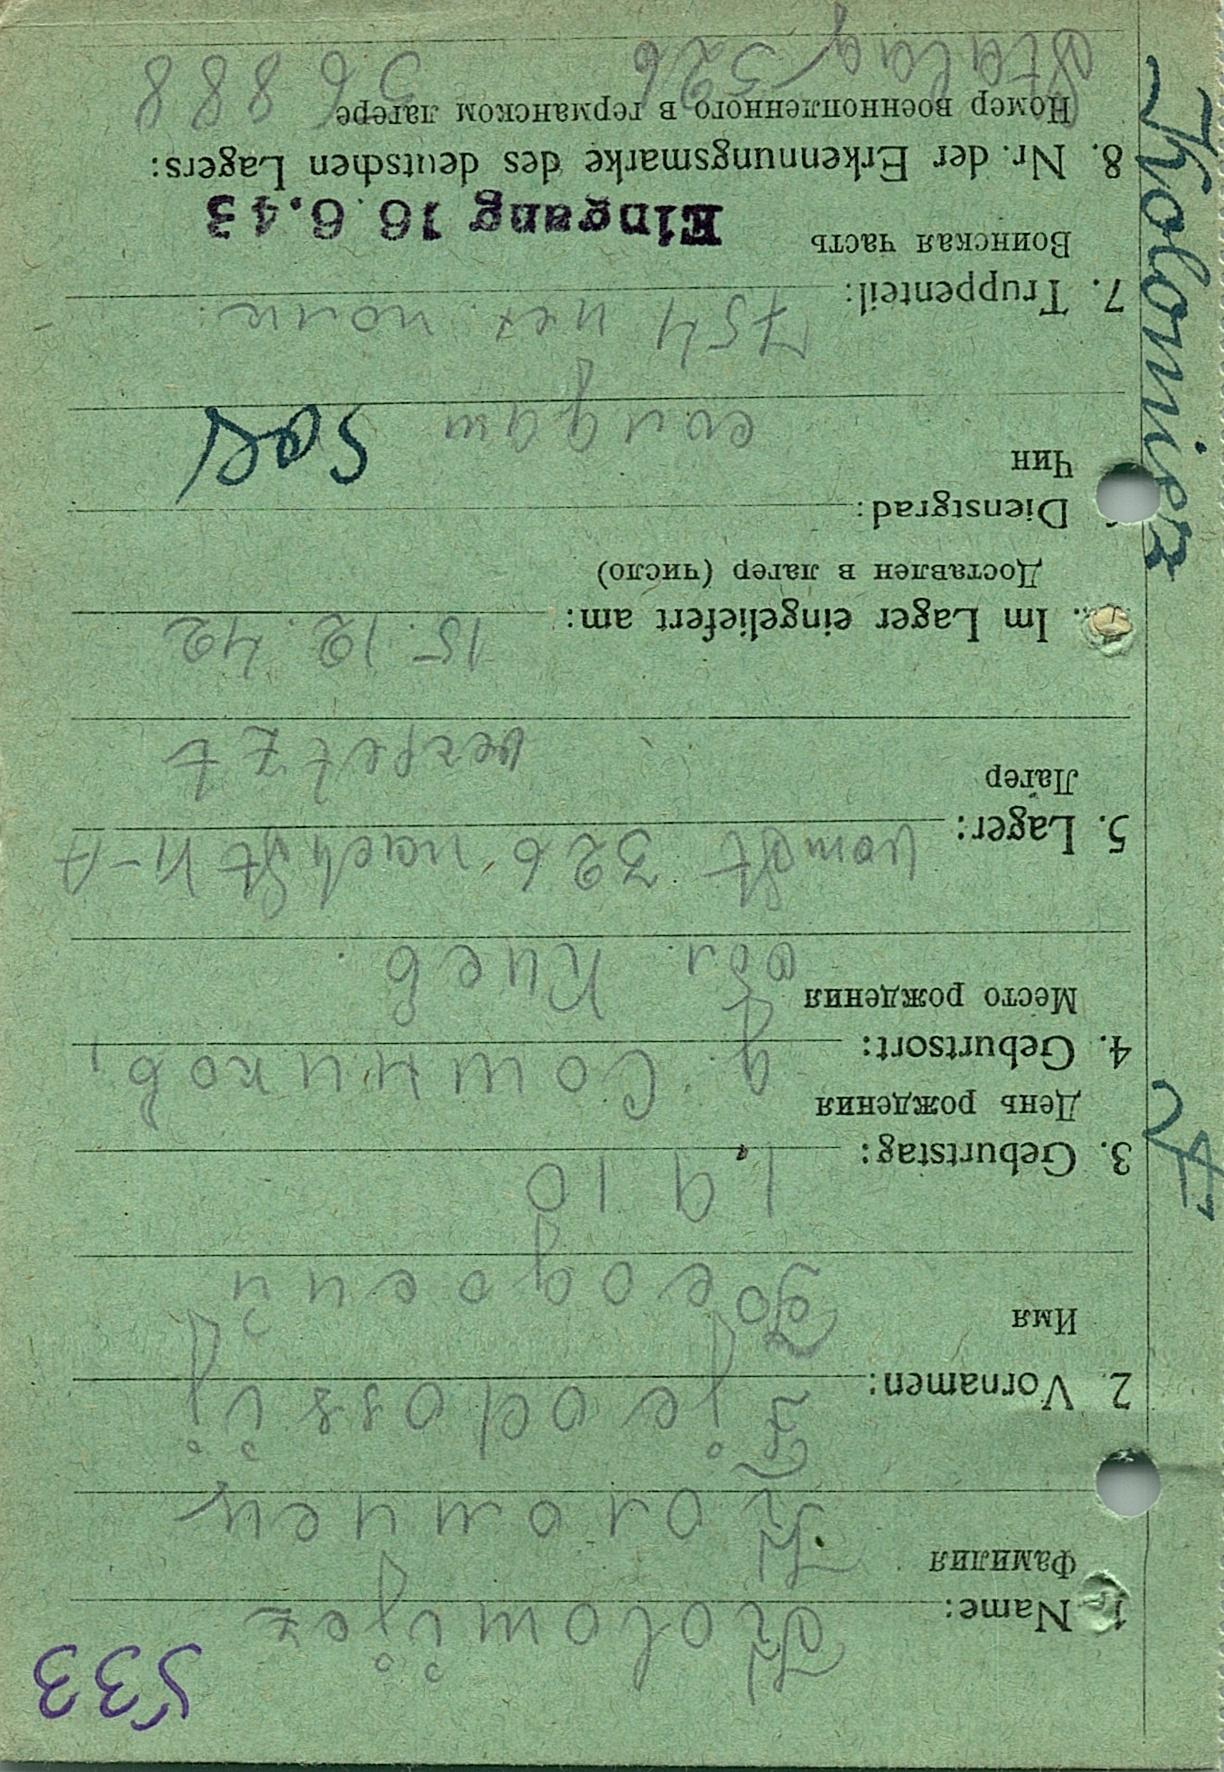 533
1. Name: Kolomijez
Фамилия Коломиец
2. Vornamen: Fjeodossij
Имя Феодосий
3. Geburtstag: 1910
День рождения
4. Geburtsort: д. Сошников,
Место рождения обл. Киев.
5. Lager: vom St 326 nach St VI-A
Лагер versetzt
Im Lager eingeliefert am: 15.12.42
Доставлен в лагер (число)
Dienstgrad:
Чин солдат Sol
7. Truppenteil: 754 пех. полк.
Воинская часть Eingang 16.6.43
8. Nr. der Erkennungsmarke des deutschen Lagers:
Номер военнопленного в германском лагере
Stalag 326 56888
Kolomiez
F.